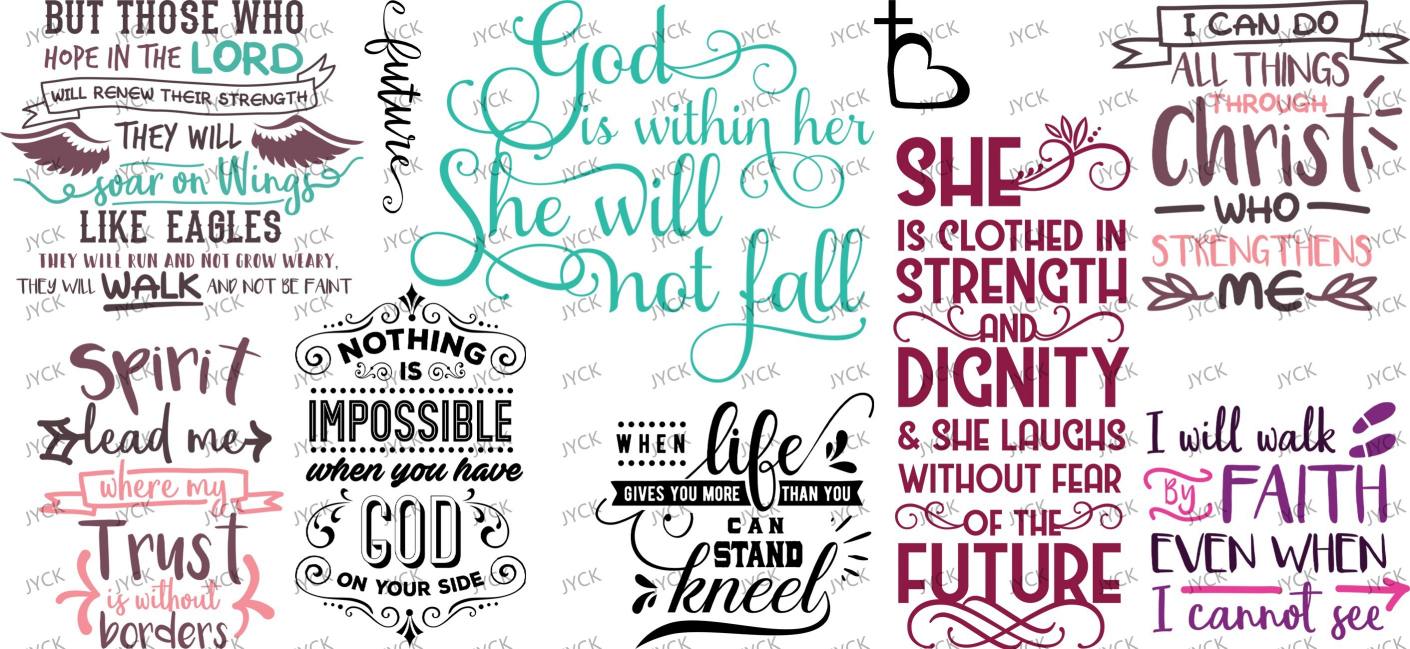 BUT THOSE WHO
HOPE IN THE LORD
WILL RENEW THEIR STRENGTH
THEY WILL
soar on Wings
LIKE EAGLES
THEY WILL RUN AND NOT GROW WEARY,
THEY WILL WALK AND NOT BE FAINT
future
God
is within her
She will
not fall
I CAN DO
ALL THINGS
THROUGH
Christ
WHO
STRENGTHENS
ME
SHE
IS CLOTHED IN
STRENGTH
AND
DIGNITY
& SHE LAUGHS
WITHOUT FEAR
OF THE
FUTURE
Spirit
lead me
where my
Trust
is without
borders
NOTHING
IS
IMPOSSIBLE
when you have
GOD
ON YOUR SIDE
WHEN life
GIVES YOU MORE THAN YOU
CAN
STAND
kneel
I will walk
BY FAITH
EVEN WHEN
I cannot see
JYCK